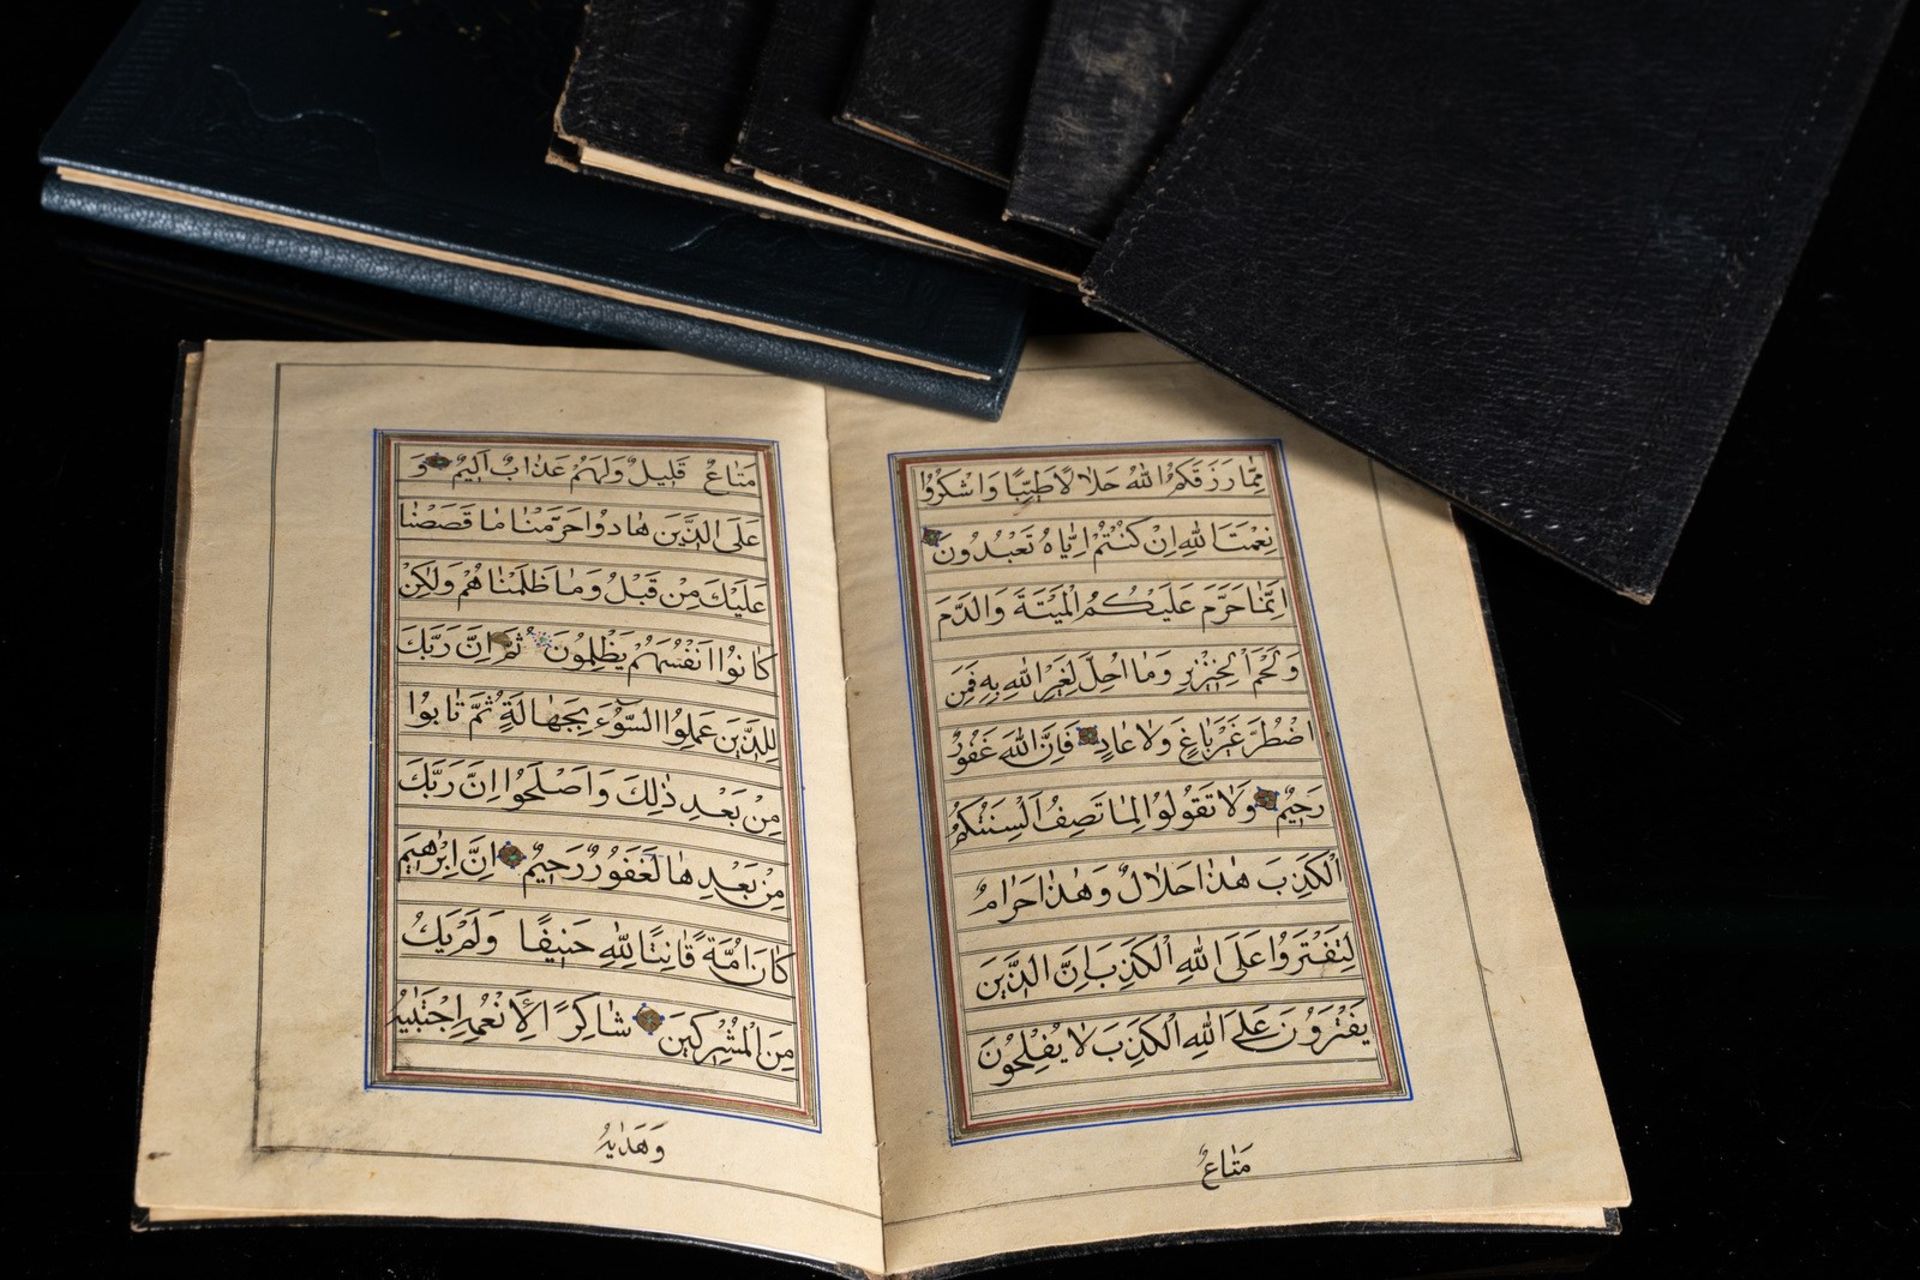 مِمَّا رَزَقَكُمُ اللّٰهُ حَلَالًا طَيِّبًا وَاشْكُرُوا
نِعْمَتَ اللّٰهِ اِنْ كُنْتُمْ اِيَّاهُ تَعْبُدُونَ
اِنَّمَا حَرَّمَ عَلَيْكُمُ الْمَيْتَةَ وَالدَّمَ
وَلَحْمَ الْخِنْزِيرِ وَمَا اُحِلَّ لِغَيْرِ اللّٰهِ بِهِ فَمَنِ
اضْطُرَّ غَيْرَ بَاغٍ وَلَا عَادٍ فَاِنَّ اللّٰهَ غَفُورٌ
رَحِيمٌ وَلَا تَقُولُوا لِمَا تَصِفُ اَلْسِنَتُكُمُ
الْكَذِبَ هٰذَا حَلَالٌ وَهٰذَا حَرَامٌ
لِتَفْتَرُوا عَلَى اللّٰهِ الْكَذِبَ اِنَّ الَّذِينَ
يَفْتَرُونَ عَلَى اللّٰهِ الْكَذِبَ لَا يُفْلِحُونَ
مَتَاعٌ
مَتَاعٌ قَلِيلٌ وَلَهُمْ عَذَابٌ اَلِيمٌ وَ
عَلَى الَّذِينَ هَادُوا حَرَّمْنَا مَا قَصَصْنَا
عَلَيْكَ مِنْ قَبْلُ وَمَا ظَلَمْنَاهُمْ وَلٰكِنْ
كَانُوا اَنْفُسَهُمْ يَظْلِمُونَ ثُمَّ اِنَّ رَبَّكَ
لِلَّذِينَ عَمِلُوا السُّوٓءَ بِجَهَالَةٍ ثُمَّ تَابُوا
مِنْ بَعْدِ ذٰلِكَ وَاَصْلَحُوا اِنَّ رَبَّكَ
مِنْ بَعْدِهَا لَغَفُورٌ رَحِيمٌ اِنَّ اِبْرٰهِيمَ
كَانَ اُمَّةً قَانِتًا لِلّٰهِ حَنِيفًا وَلَمْ يَكُ
مِنَ الْمُشْرِكِينَ شَاكِرًا لِاَنْعُمِهِ اِجْتَبٰيهُ
وَهَدٰيهُ